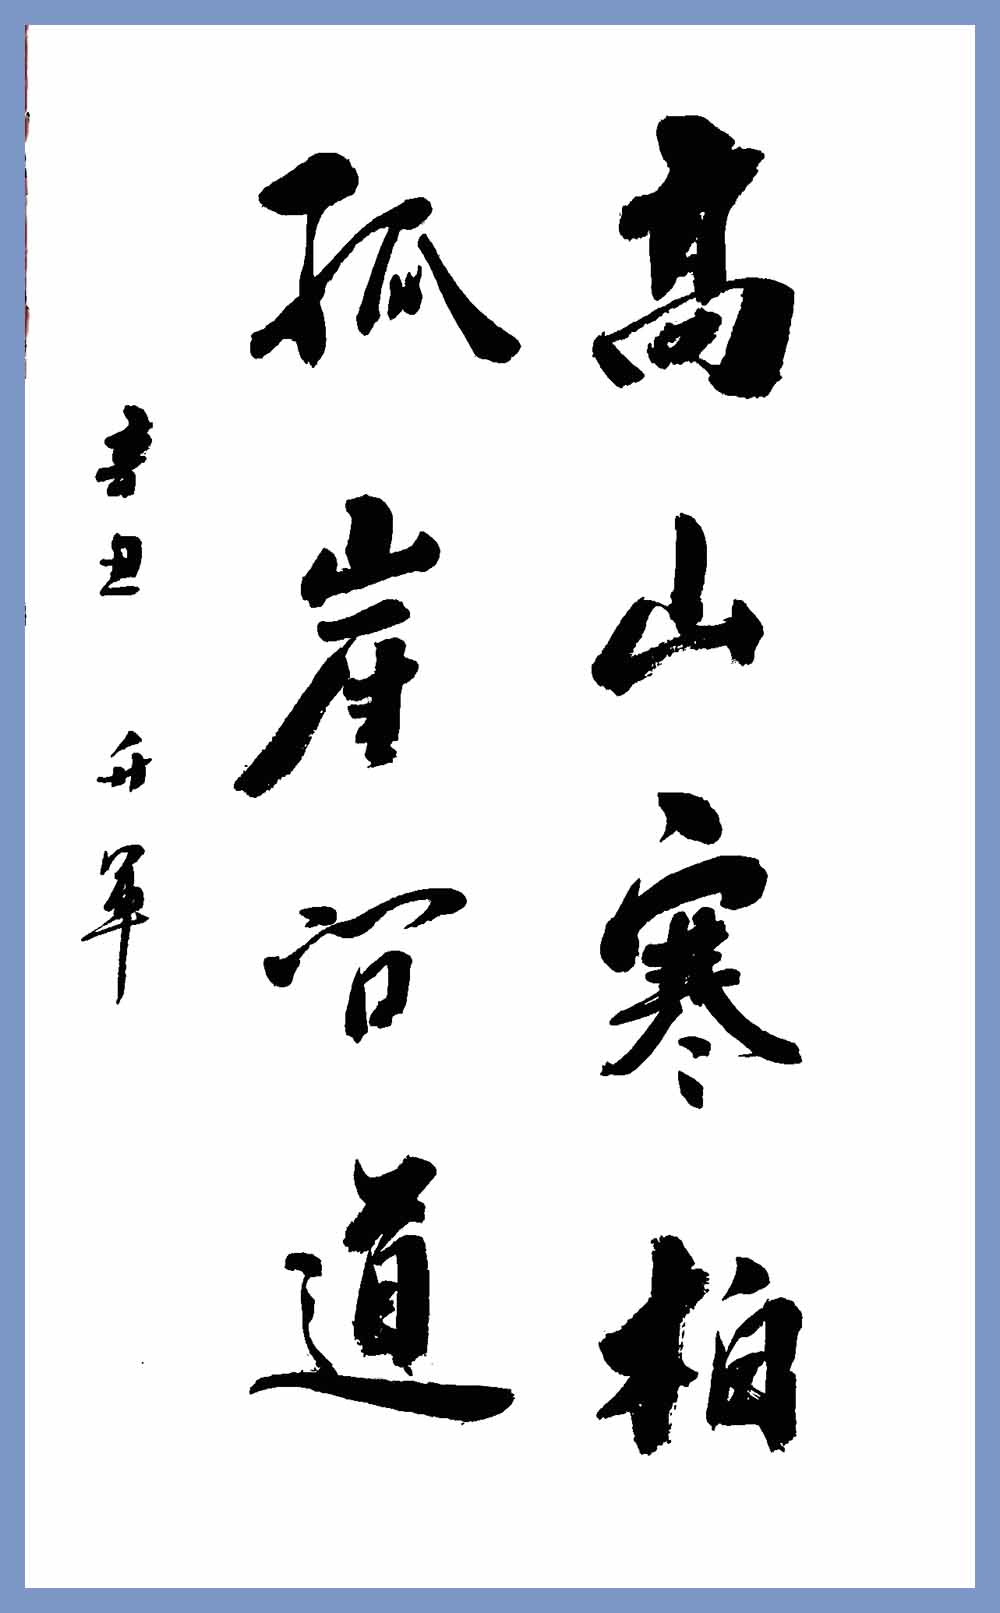 高山寒柏
孤崖问道
辛丑 升軍